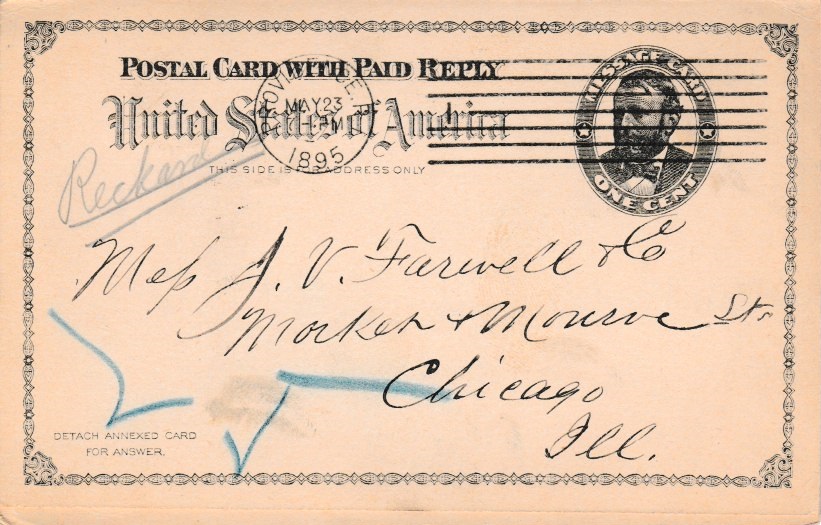 POSTAL CARD WITH PAID REPLY
United States of America
THIS SIDE IS FOR ADDRESS ONLY
PROVIDENCE R.I.
MAY 23
PM
1895
MESSAGE CARD
ONE CENT
Reckard
Mess J. V. Farwell & Co
Market & Monroe Sts
Chicago
Ill.
DETACH ANNEXED CARD
FOR ANSWER.